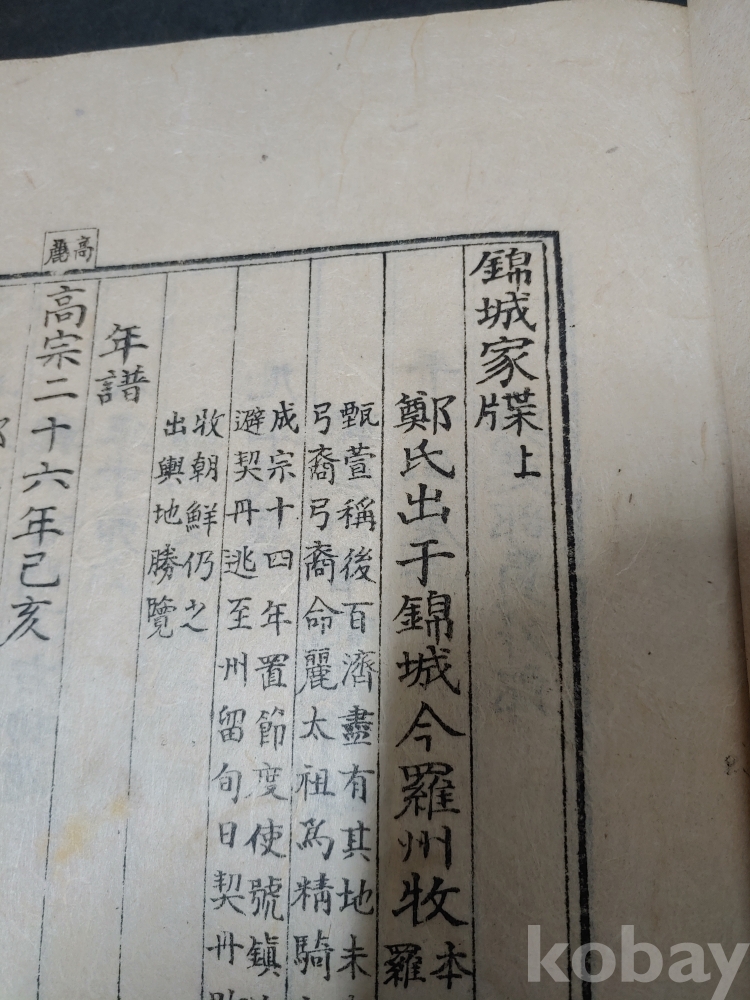 錦城家牒上
鄭氏出于錦城今羅州牧
本
羅
甄萱稱後百濟盡有其地未
弓裔弓裔命麗太祖爲精騎
成宗十四年置節度使號鎮
避契丹逃至州留旬日契丹
牧朝鮮仍之
出輿地勝覽
年譜
高麗
高宗二十六年己亥
kobay